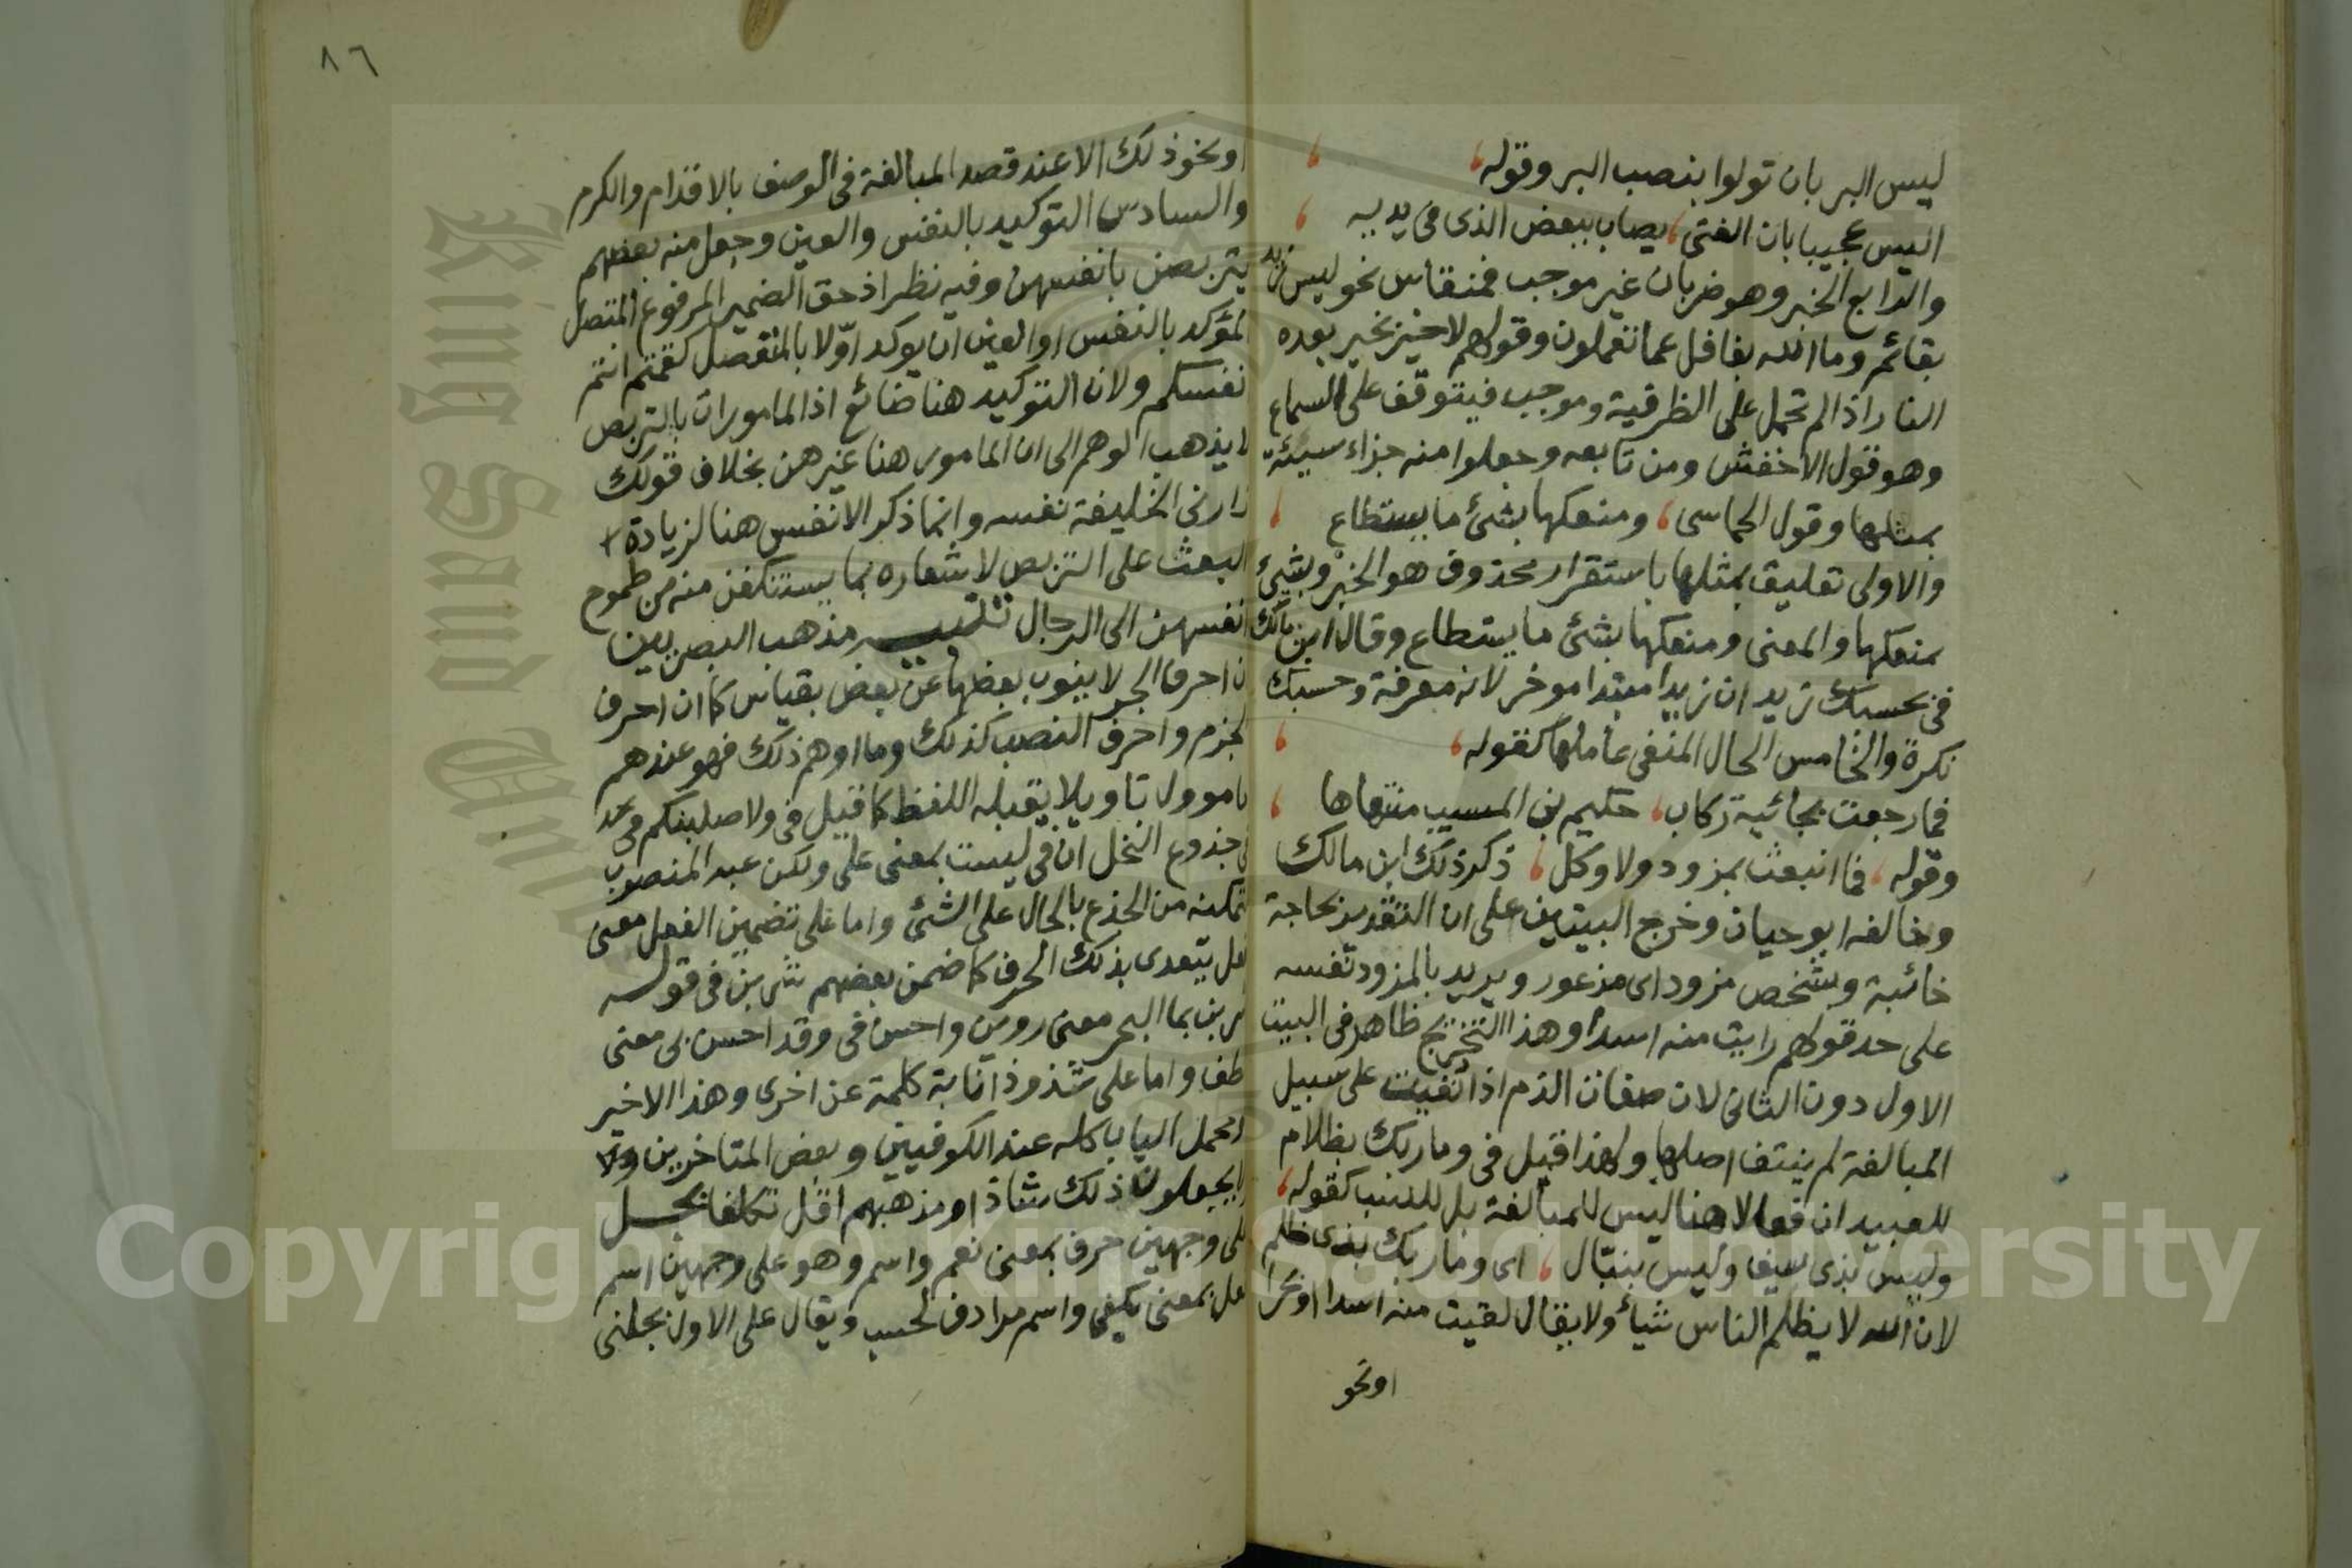 ليس البر بان تولوا بنصب البر وقوله
اليس عجيبا بان الفتى، يصاب ببعض الذى فى يديه
والرابع الخبر وهو ضربان غير موجب فمنقاس نحو ليس زيد
بقائم وما الله بغافل عما تعملون وقولهم لا خير بخير بعده
النار اذا لم تحمل على الظرفية وموجب فيتوقف على السماع
وهو قول الاخفش ومن تابعه وجعلوا منه جزاء سيئة
بمثلها وقول الحماسى، ومنعكها بشئ ما يستطاع
والاولى تعليق بمثلها باستقرار محذوف هو الخبر وبشئ
بمنعكها والمعنى ومنعكها بشئ ما يستطاع وقال ابن مالك
فى بحسبك زيد ان زيدا مبتدا موخر لانه معرفة وحسبك
نكرة والخامس الحال المنفى عاملها كقوله،
فما رجعت بخائبة ركاب، حكيم بن المسيب منتهاها
وقوله، فما انبعثت بمزود ولا وكل، ذكر ذلك ابن مالك
وخالفه ابو حيان وخرج البيتين على ان التقدير بحاجة
خائبة وبشخص مزود اى مذعور ويريد بالمزود نفسه
على حد قولهم رايت منه اسدا وهذا التخريج ظاهر فى البيت
الاول دون الثانى لان صفات الذم اذا نفيت على سبيل
المبالغة لم ينتف اصلها ولهذا قيل فى وما ربك بظلام
للعبيد ان فعالا هنا ليس للمبالغة بل للنسب كقوله،
وليس بذى سيف وليس بنبال، اى وما ربك بذى ظلم
لان الله لا يظلم الناس شيأ ولا يقال لقيت منه اسدا او بحرا
او نحو
٨٦
او نحو ذلك الا عند قصد المبالغة فى الوصف بالاقدام والكرم
والسادس التوكيد بالنفس والعين وجعل منه بعضهم
يتربصن بانفسهن وفيه نظر اذ حق الضمير المرفوع المتصل
المؤكد بالنفس او العين ان يوكد اولا بالمنفصل كقمتم انتم
انفسكم ولان التوكيد هنا ضائع اذ المامورات بالتربص
لا يذهب الوهم الى ان المامور هنا غيرهن بخلاف قولك
زارنى الخليفة نفسه وانما ذكر الانفس هنا لزيادة
البعث على التربص لاشعاره بما يستنكفن منه من طموح
انفسهن الى الرجال تنبيه مذهب البصريين
ان احرف الجر لا ينوب بعضها عن بعض بقياس كما ان احرف
الجزم واحرف النصب كذلك وما اوهم ذلك فهو عندهم
اما موول تاويلا يقبله اللفظ كما قيل فى ولاصلبنكم
فى جذوع النخل ان فى ليست بمعنى على ولكن
لتمكنه من الجذع بالحال على الشئ واما على تضمين الفعل معنى
فعل يتعدى بذلك الحرف كما ضمن بعضهم شربن فى قوله
شربن بما البحر معنى روين واحسن فى وقد احسن بى معنى
لطف واما على شذوذ انابة كلمة عن اخرى وهذا الاخير
هو محمل الباب كله عند الكوفيين وبعض المتاخرين ولا
يجعلون ذلك شاذا ومذهبهم اقل تكلفا بجل
على وجهين حرف بمعنى نعم واسم وهو على وجهين اسم
فعل بمعنى يكفى واسم مرادف لحسب ويقال على الاول بجلنى
Copyright © King Saud University
King Saud University